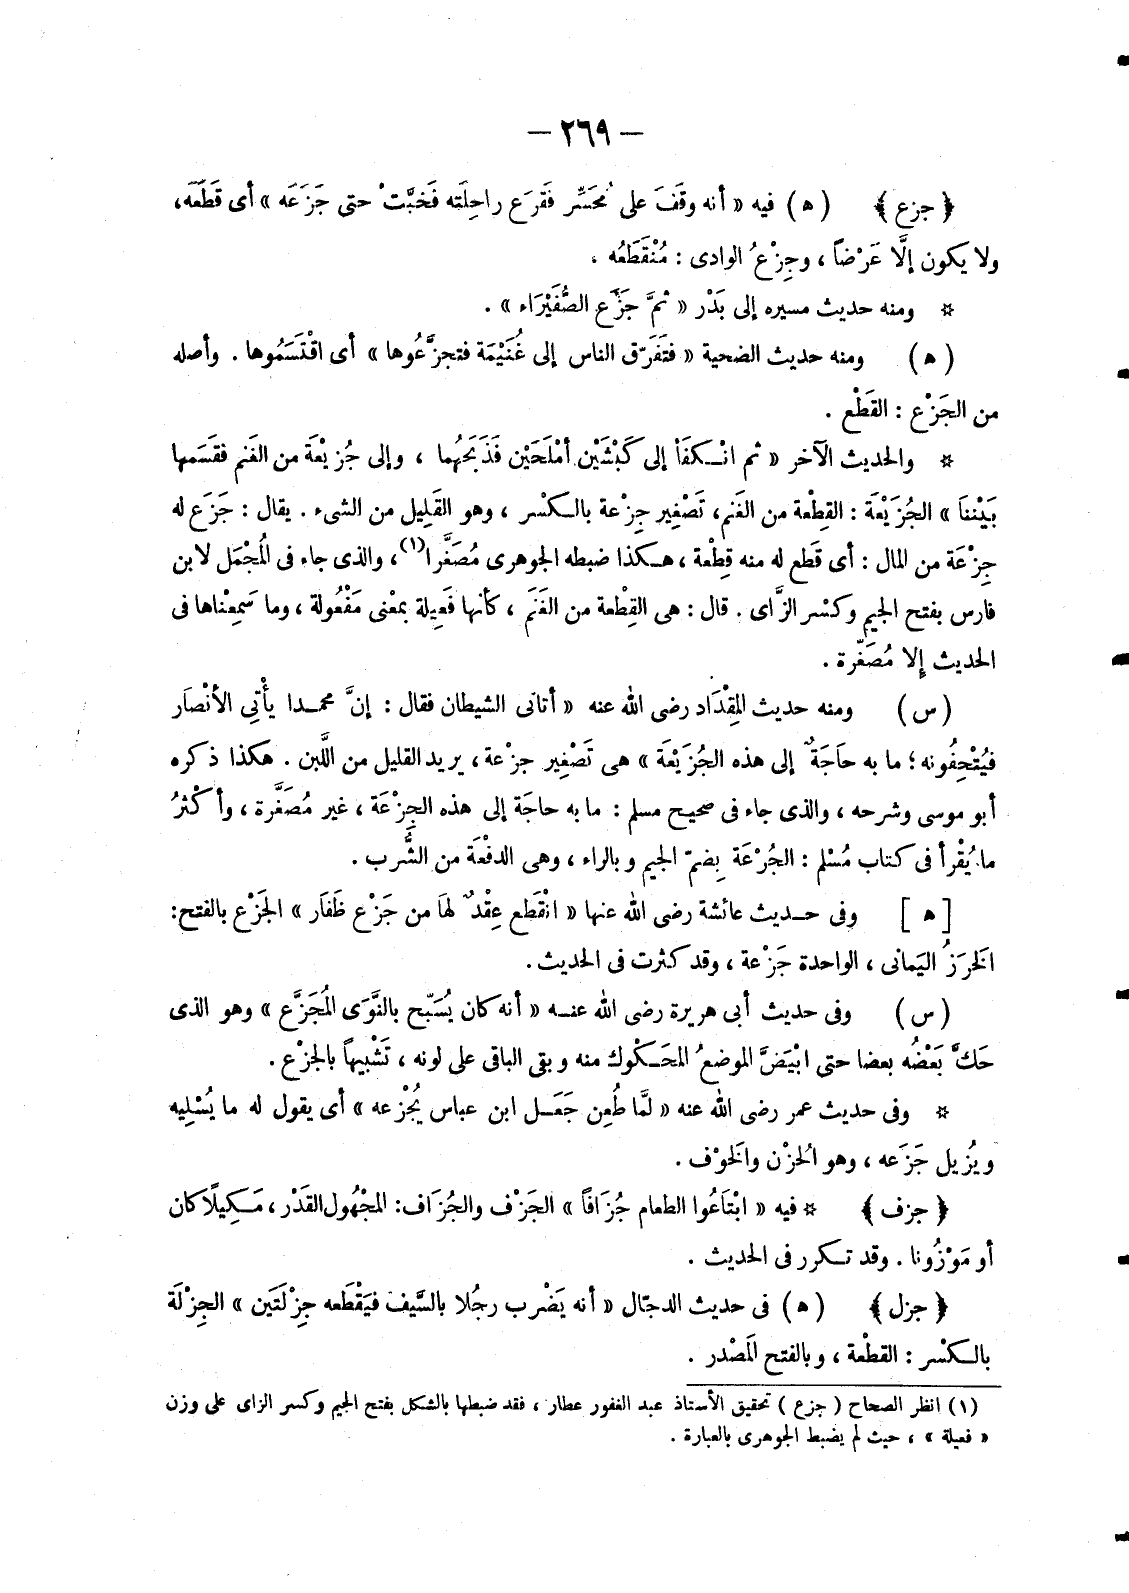 — ٢٦٩ —
﴿ جزع ﴾ ( ه ) فيه « أنه وقَفَ على مُحَسِّر فقَرَع راحِلَته فَخبَّتْ حتى جَزَعَه » أى قَطَعَه،
ولا يكون إلَّا عَرْضاً ، وجِزْعُ الوادى : مُنْقَطَعُه .
* ومنه حديث مسيره إلى بَدْر « ثمَّ جَزَع الصُّفَيْرَاء » .
( ه ) ومنه حديث الضحية « فتَفَرّق الناس إلى غُنَيْمَة فتجزَّعُوها » أى اقْتَسَمُوها . وأصله
من الجَزْع : القَطْع .
* والحديث الآخر « ثم انْكفَأ إلى كَبْشَيْن أمْلَحَيْن فَذَبَحَهُما ، وإلى جُزَيْعَة من الغَنم فقَسَمها
بَيْننَا » الجُزَيْعَة : القِطْعة من الغَنم، تَصْغِير جِزْعة بالكسْر ، وهو القَلِيل من الشىء . يقال : جَزَع له
جِزْعَة من المال : أى قَطع له منه قِطْعة ، هكذا ضبطه الجوهرى مُصَغَّرا(١)، والذى جاء فى المُجْمَل لابن
فارس بفتح الجيم وكسْر الزَّاى . قال : هى القِطْعة من الغَنَم ، كأنها فَعِيلة بمعْنى مَفْعُولة ، وما سَمِعْناها فى
الحديث إلا مُصَغّرة .
( س ) ومنه حديث المِقْدَاد رضى الله عنه « أتانى الشيطان فقال : إنَّ محمدا يأْتِى الأنْصَار
فيُتْحِفُونه ؛ ما به حاَجَةٌ إلى هذه الجُزَيْعَة » هى تَصْغِير جزْعة ، يريد القليل من اللَّبن . هكذا ذكره
أبو موسى وشرحه ، والذى جاء فى صحيح مسلم : ما به حاجَة إلى هذه الجِزْعَة ، غير مُصَغَّرة ، وأكْثرُ
ما يُقْرأ فى كتاب مُسْلم : الجُرْعَة بِضمّ الجيم وبالراء ، وهى الدفْعَة من الشُّرب .
[ ه ] وفى حديث عائشة رضى الله عنها « انْقَطع عِقْدٌ لهَا من جَزْع ظَفَار » الجَزْع بالفتح:
الخَرَزُ اليَمانى ، الواحدة جَزْعة ، وقد كثرت فى الحديث .
( س ) وفى حديث أبى هريرة رضى الله عنه « أنه كان يُسَبّح بالنَّوَى المُجَزَّع » وهو الذى
حَكَّ بَعْضُه بعضا حتى ابْيَضَّ الموضعُ المحَكْوك منه وبقى الباقى على لونه ، تَشْبِيهاً بالجزْع .
* وفى حديث عمر رضى الله عنه « لَمَّا طُعِن جَعَل ابن عباس يُجْزِعه » أى يقول له ما يُسْلِيه
ويُزيل جَزَعه ، وهو الُحزْن والَخوْف .
﴿ جزف ﴾ * فيه « ابْتَاعُوا الطعام جُزَافاً » الجَزْف والجُزَاف: المجْهُول القَدْر ، مَكِيلًا كان
أو مَوْزُونا . وقد تكرر فى الحديث .
﴿ جزل ﴾ ( ه ) فى حديث الدجّال « أنه يَضْرب رجُلا بالسَّيف فيَقْطَعه جِزْلَتَين » الجِزْلَة
بالكسْر : القطْعة ، وبالفتح المَصْدر .
(١) انظر الصحاح ( جزع ) تحقيق الأستاذ عبد الغفور عطار ، فقد ضبطها بالشكل بفتح الجيم وكسر الزاى على وزن
« فعيلة » ، حيث لم يضبط الجوهرى بالعبارة .